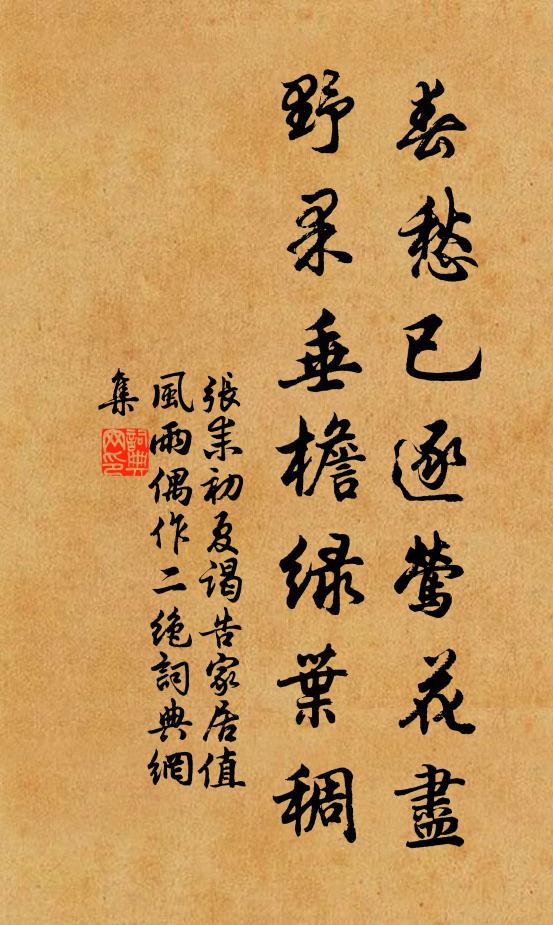 春愁已逐鶯花盡
野果垂檐緑葉稠
張耒初夏謁告家居值
風雨偶作二絶詞典網
集
詞典
网印